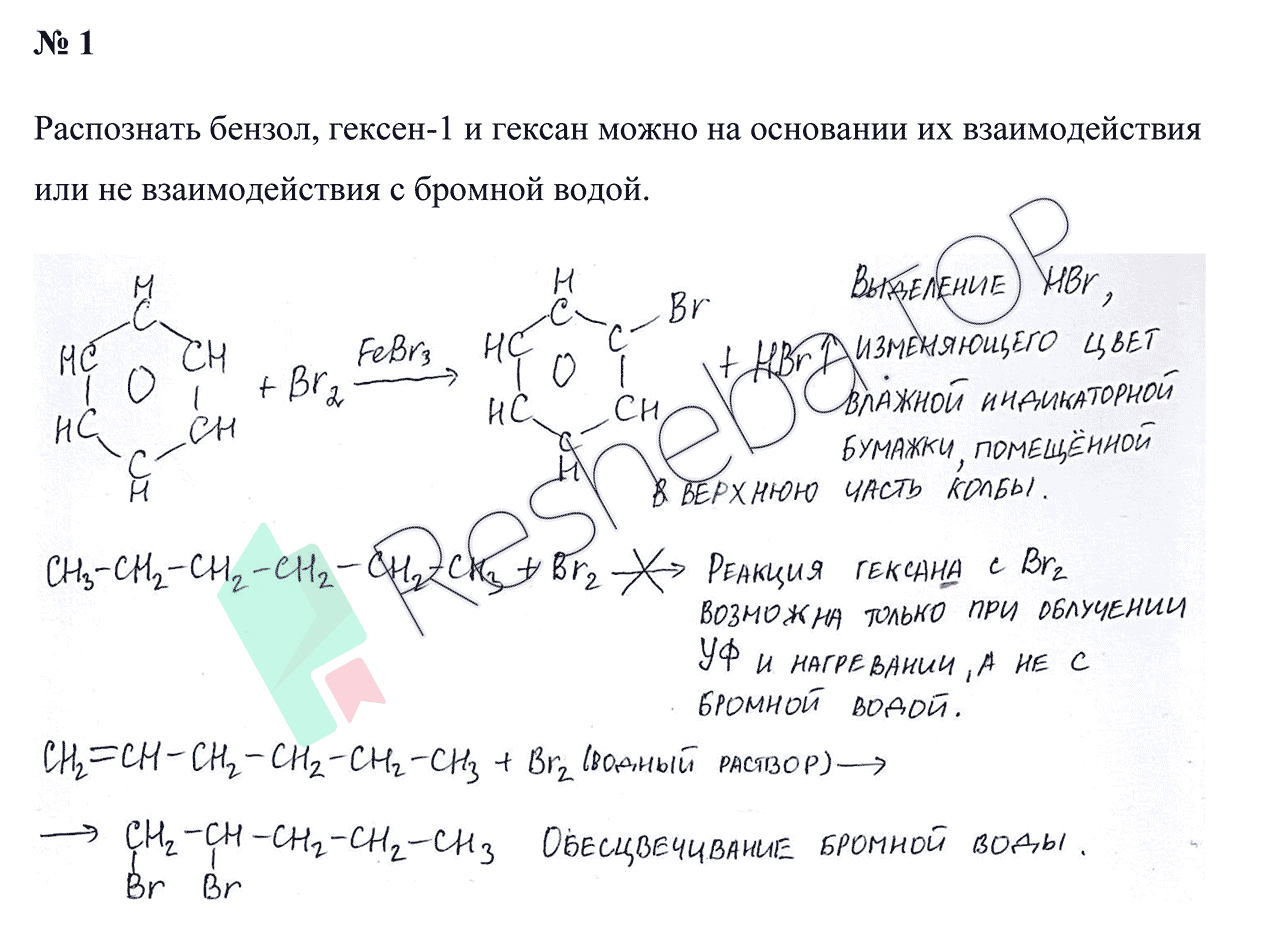 № 1
Распознать бензол, гексен-1 и гексан можно на основании их взаимодействия
или не взаимодействия с бромной водой.
H
C
HC CH
HC CH
C
H
+ Br2 FeBr3 →
H
C
HC C – Br
HC CH
C
H
+ HBr↑
Выделение HBr,
изменяющего цвет
влажной индикаторной
бумажки, помещённой
в верхнюю часть колбы.
CH3–CH2–CH2–CH2–CH2–CH3 + Br2 → Реакция гексана с Br2
возможна только при облучении
УФ и нагревании, а не с
бромной водой.
CH2=CH–CH2–CH2–CH2–CH3 + Br2 (водный раствор) →
→ CH2–CH–CH2–CH2–CH3 Обесцвечивание бромной воды.
Br Br
Resheba TOP